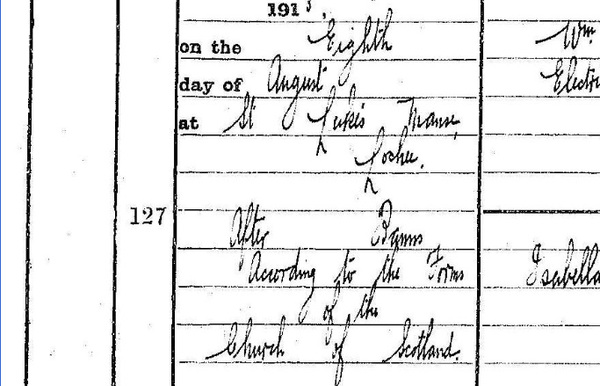 191
on the Eighth
day of August
at St Luke's Manse,
Lochee.
127
After Banns
According to the Forms
of the
Church of Scotland.
Wm
Isabella